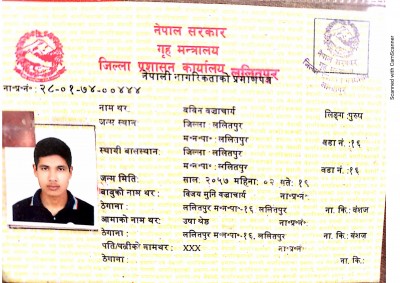 नेपाल सरकार
गृह मन्त्रालय
जिल्ला प्रशासन कार्यालय ललितपुर
नेपाली नागरिकताको प्रमाणपत्र
ना॰प्र॰नं॰: २८-०१-७४-००४४४
नाम थर: बज्राचार्य लिङ्ग: पुरुष
जन्म स्थान: जिल्ला: ललितपुर
म॰न॰पा॰: ललितपुर वडा नं.:१६
स्थायी बासस्थान: जिल्ला: ललितपुर
म॰न॰पा॰: ललितपुर वडा नं.:१६
जन्म मिति: साल: २०५७ महिना: ०२ गते: १६
बाबुको नाम थर: विजय मुनि बज्राचार्य ना॰प्र॰नं॰
ठेगाना: ललितपुर म॰न॰पा॰-१६ ललितपुर ना. कि.: वंशज
आमाको नाम थर: उषा श्रेष्ठ ना॰प्र॰नं॰
ठेगाना: ललितपुर म॰न॰पा॰-१६, ललितपुर ना. कि.: वंशज
पति/पत्नीको नामथर: XXX ना॰प्र॰नं॰
ठेगाना: ना. कि.:
नेपाल सरकार
ललितपुर
Scanned with CamScanner